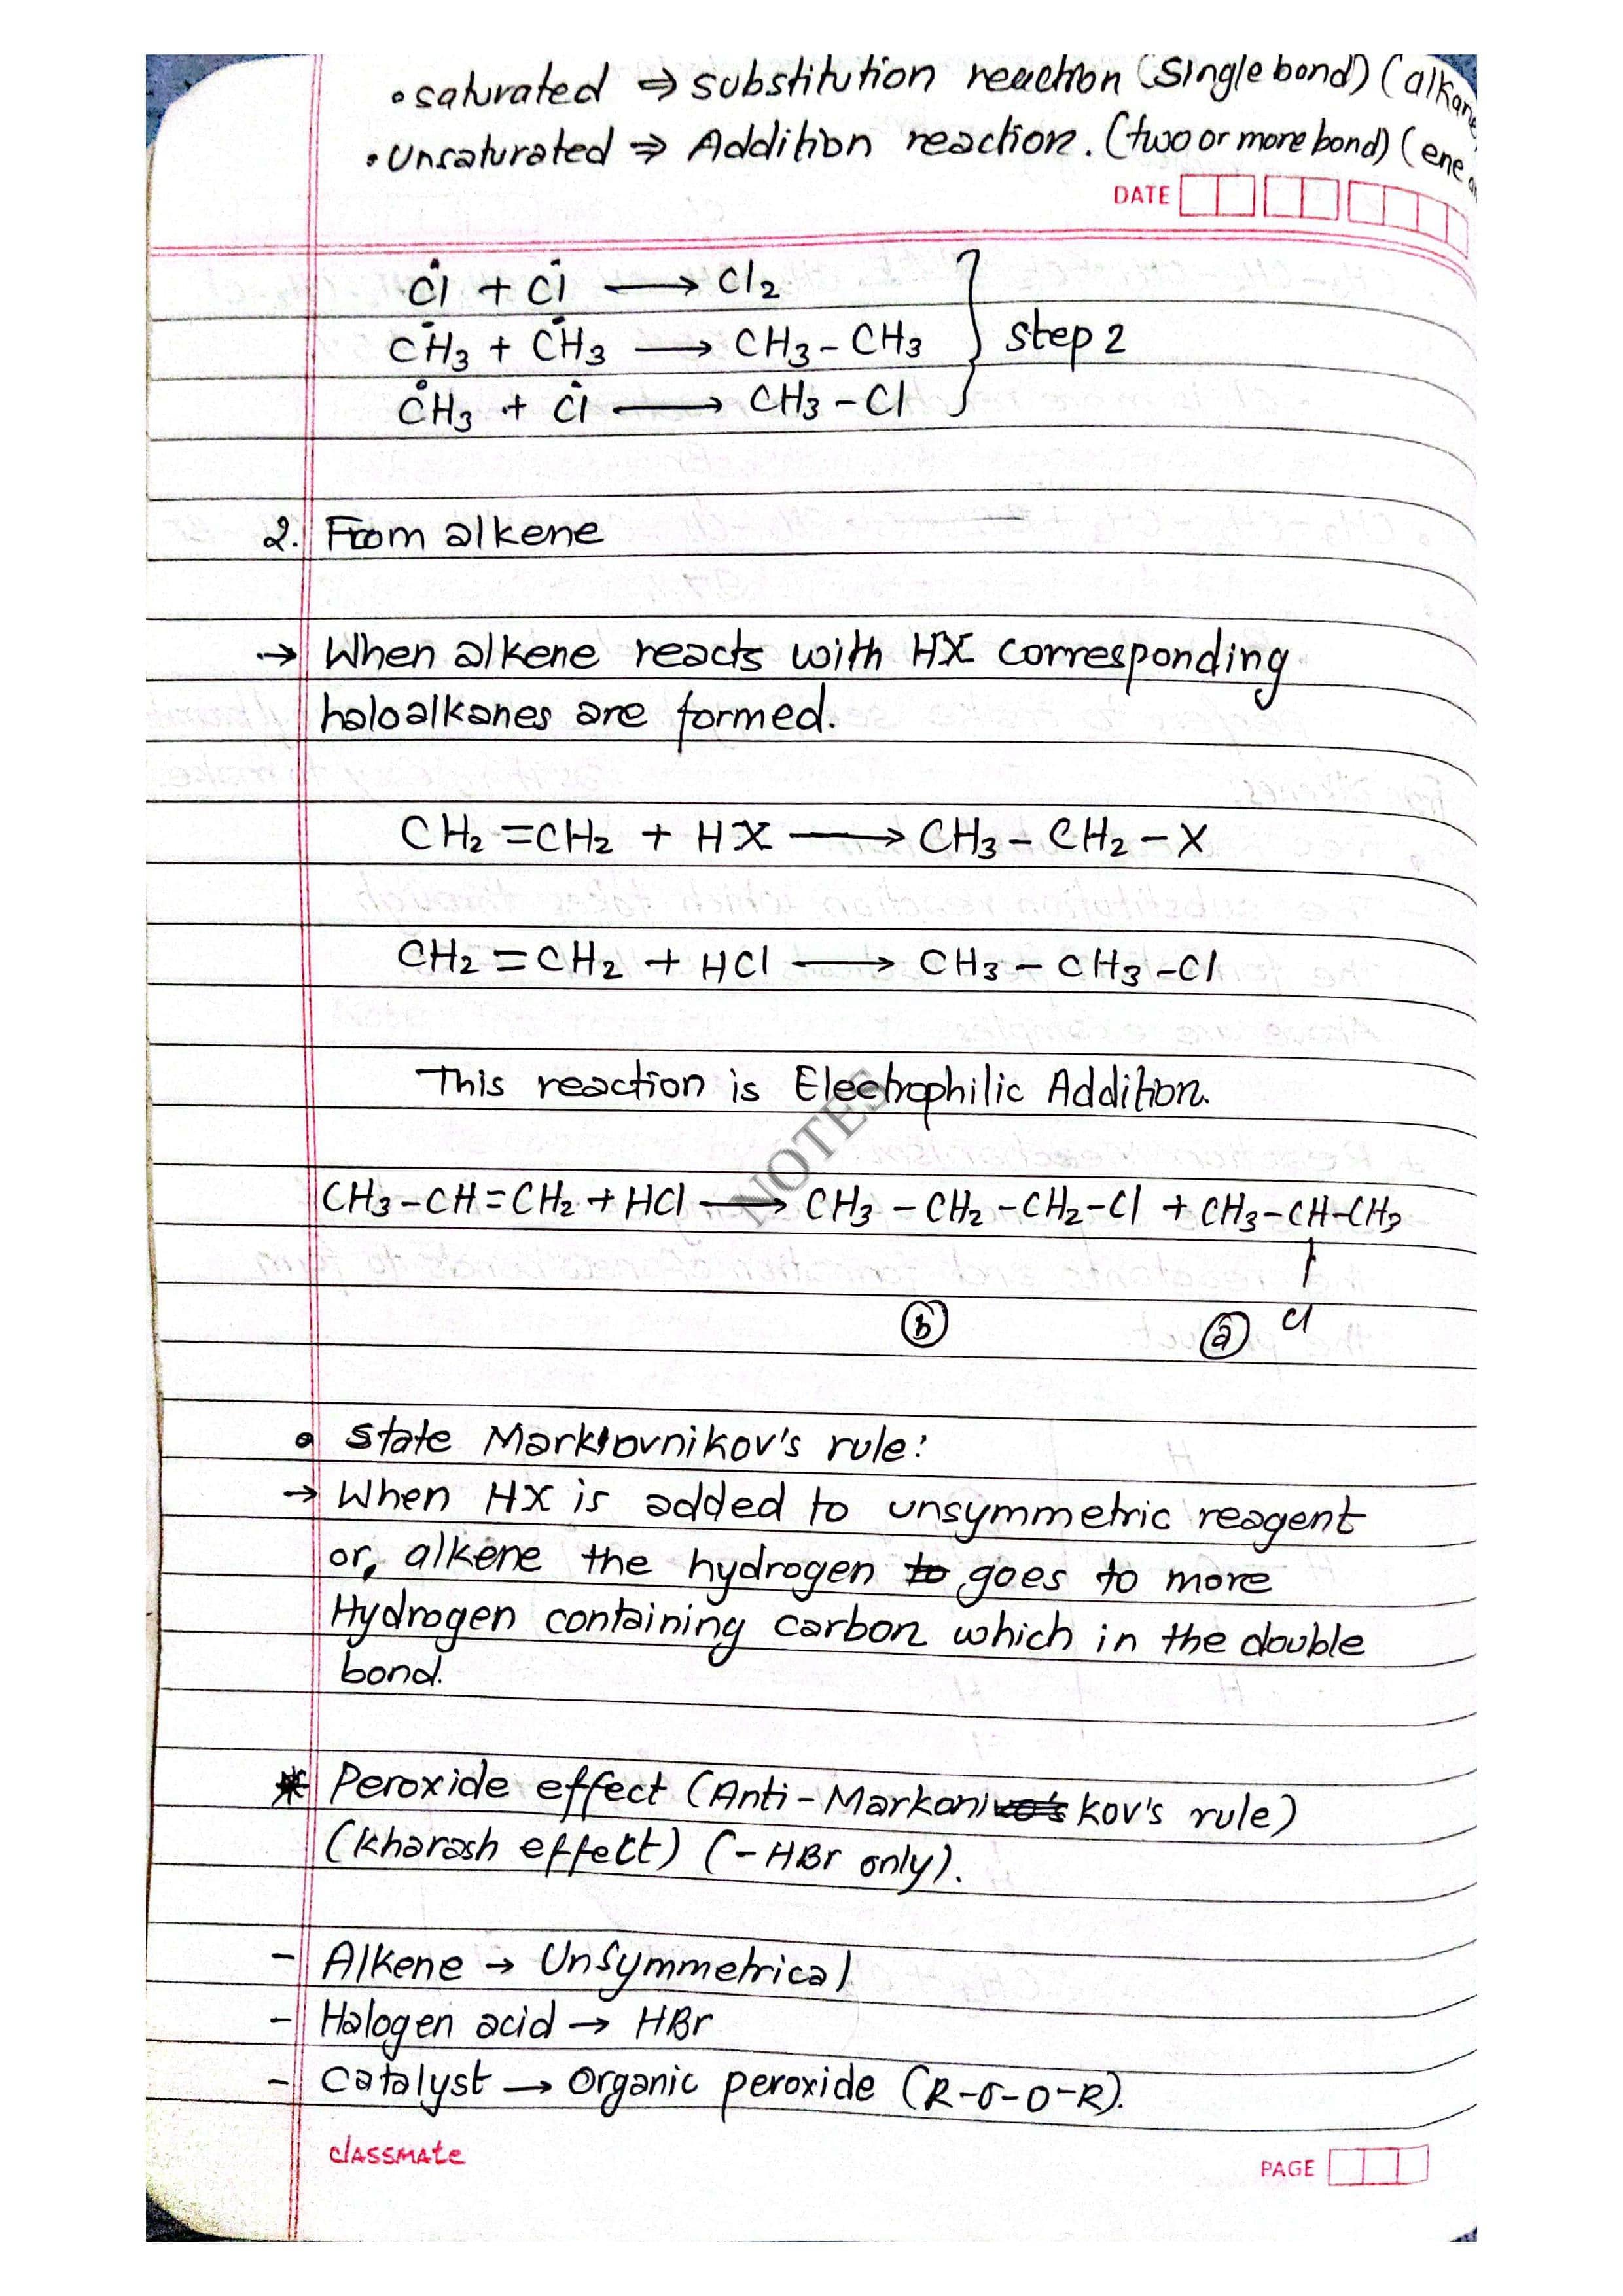 • saturated ⇒ substitution reaction (single bond) (alkane
• Unsaturated ⇒ Addition reaction. (two or more bond) (ene
DATE
Cl• + Cl• ⟶ Cl₂
CH₃• + CH₃• ⟶ CH₃-CH₃ } step 2
CH₃• + Cl• ⟶ CH₃-Cl
2. From alkene
→ When alkene reacts with HX corresponding
haloalkanes are formed.
CH₂=CH₂ + HX ⟶ CH₃-CH₂-X
CH₂=CH₂ + HCl ⟶ CH₃-CH₃-Cl
This reaction is Electrophilic Addition.
NOTES
CH₃-CH=CH₂ + HCl ⟶ CH₃-CH₂-CH₂-Cl + CH₃-CH-CH₃
|
Cl
ⓑ ⓐ
• State Markovnikov's rule:
→ When HX is added to unsymmetric reagent
or, alkene the hydrogen to goes to more
Hydrogen containing carbon which in the double
bond.
* Peroxide effect (Anti-Markonikov's rule)
(Kharash effect) (-HBr only).
- Alkene → Unsymmetrical
- Halogen acid → HBr
- Catalyst → Organic peroxide (R-O-O-R).
classmate
PAGE